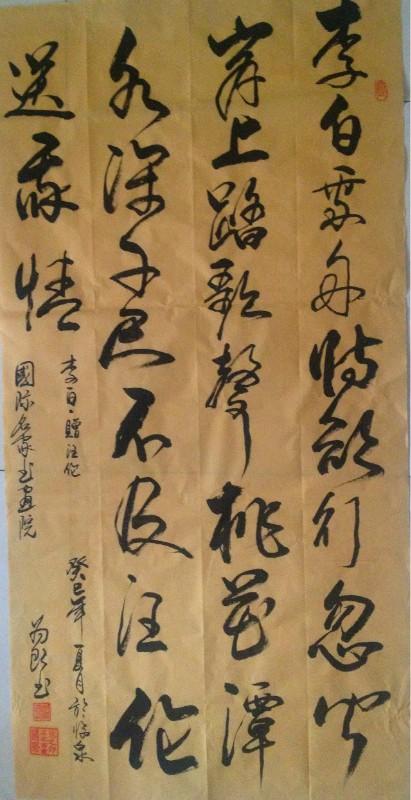 李白乘舟將欲行忽聞
岸上踏歌聲桃花潭
水深千尺不及汪倫
送我情
李白贈汪倫
癸巳年夏月於臨泉
國際名家書畫院